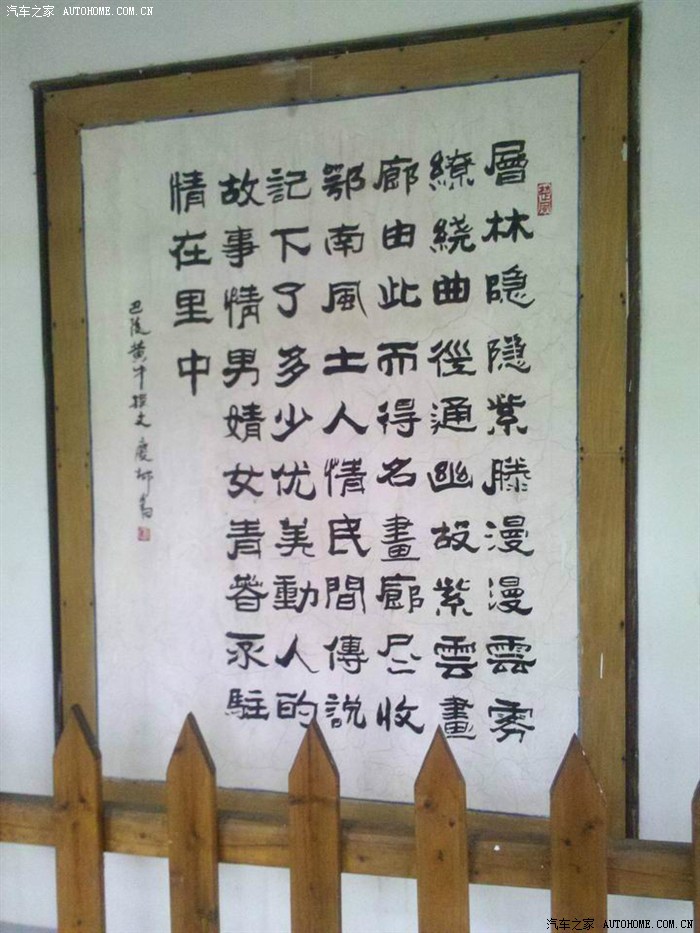 汽车之家 AUTOHOME.COM.CN
層林隐隐紫滕漫漫雲雾
繚绕曲徑通幽故紫雲畫
廊由此而得名畫廊尽收
鄂南風土人情民間傳説
記下了多少优美動人的
故事情男婧女青春永駐
情在里中
巴陵黄牛撰文
汽车之家 AUTOHOME.COM.CN